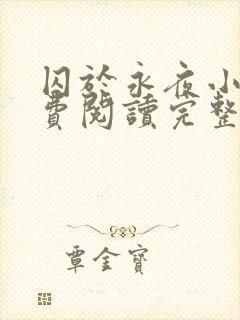 囚於永夜小
費閱讀完整
覃金寶